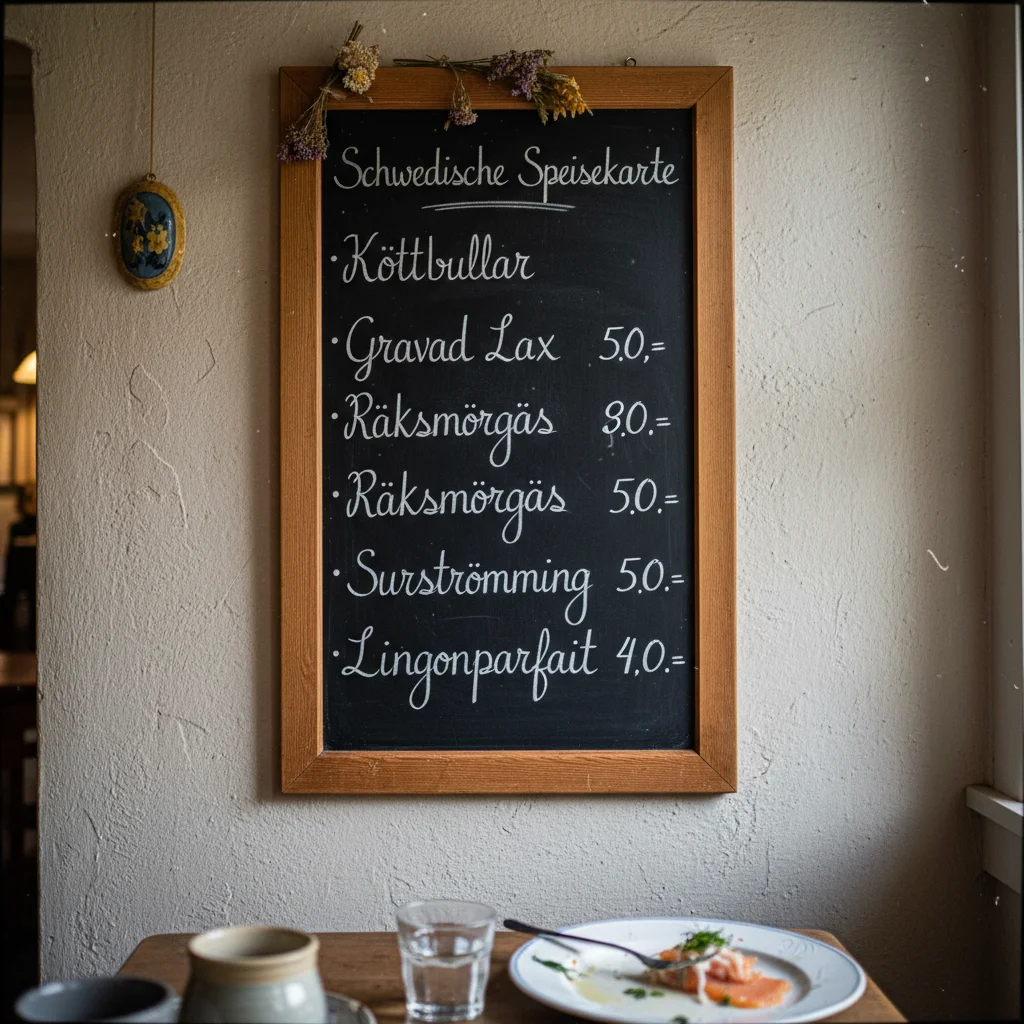 Schwedische Speisekarte
• Köttbullar
• Gravad Lax 5.0,=
• Räksmörgäs 8.0.=
• Räksmörgäs 5.0.=
• Surströmming 5.0.=
• Lingonparfait 4,0.=